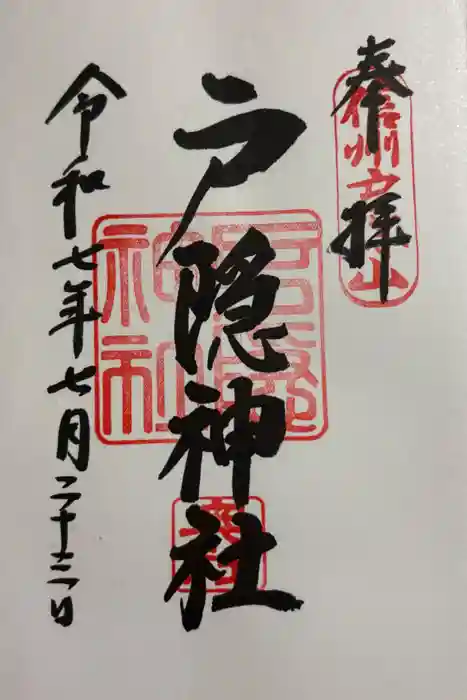 奉拝
信州戸隠山
戸隠神社
戸隠神社
令和七年七月二十三日